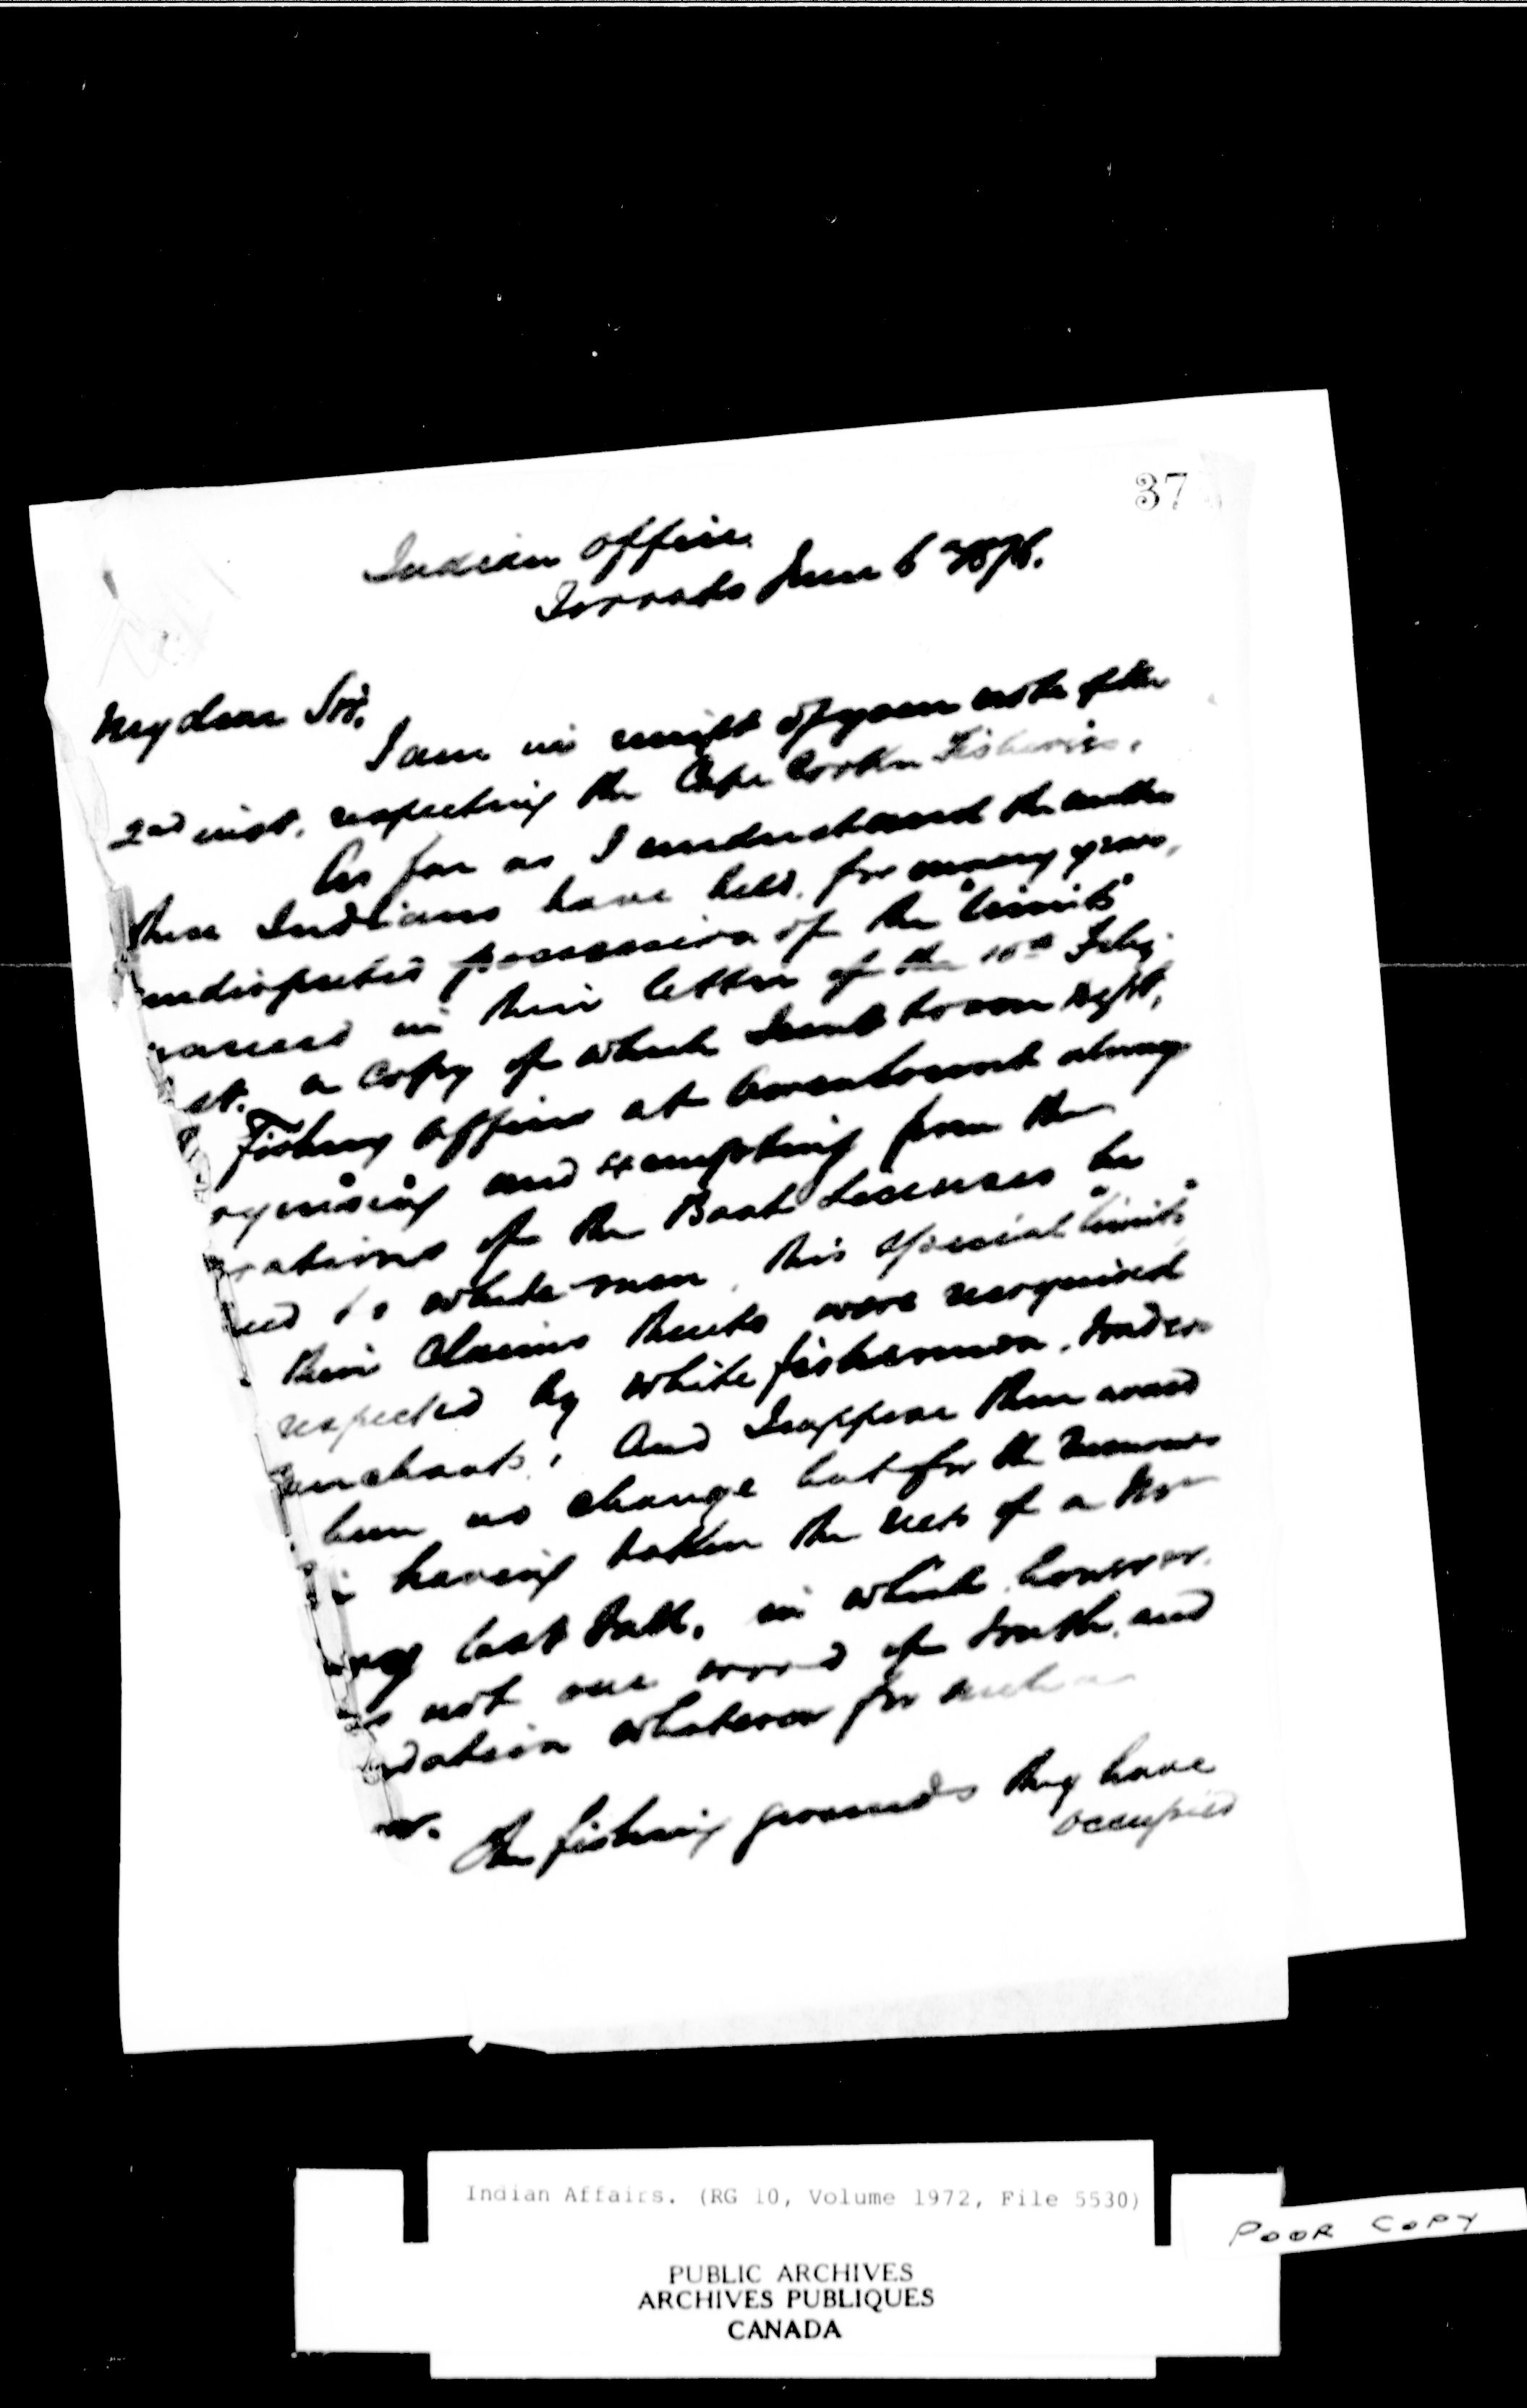 37
Indian Office
Toronto June 6 1876.
My dear Sir.
I am in receipt of your note of the
2nd inst. respecting the Cape Croker Fisheries.
As far as I understand the matter
these Indians have held for many years,
undisputed possession of the "limits"
named in their letter of the 10th Feby
st. a copy of which I sent to you
Fishery officer at Owen Sound along
ognising and exempting from the
rations of the Boat Licenses he
ued to white men, this special "limit"
their claims thereto were recognised
respected by white fishermen, traders
merchants; And I suppose there would
been no change but for the
having taken the nets of a Mr
last Fall, in which however
is not one word of truth, and
ndation whatever for such a
The fishing grounds they have
occupied
Indian Affairs. (RG 10, Volume 1972, File 5530)
POOR COPY
PUBLIC ARCHIVES
ARCHIVES PUBLIQUES
CANADA